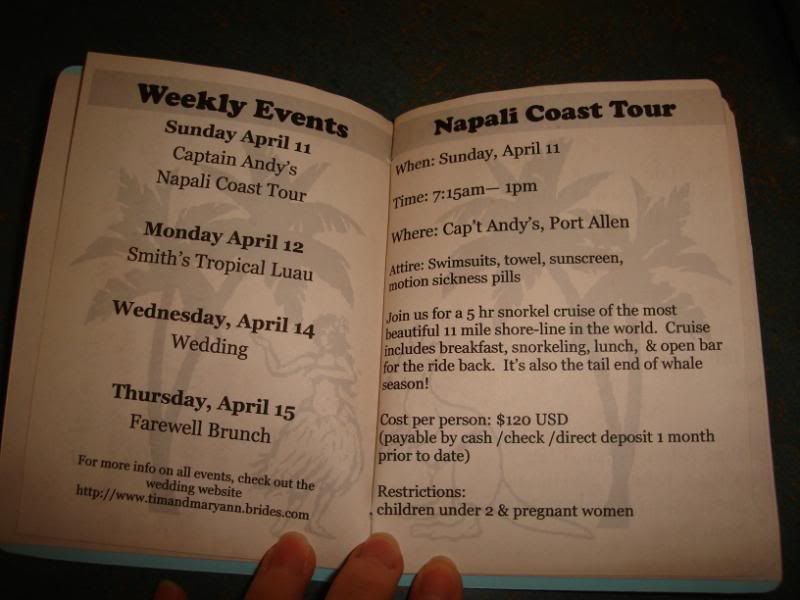 Weekly Events
Sunday April 11
Captain Andy's
Napali Coast Tour
Monday April 12
Smith's Tropical Luau
Wednesday, April 14
Wedding
Thursday, April 15
Farewell Brunch
For more info on all events, check out the
wedding website
http://www.timandmaryann.brides.com
Napali Coast Tour
When: Sunday, April 11
Time: 7:15am— 1pm
Where: Cap't Andy's, Port Allen
Attire: Swimsuits, towel, sunscreen,
motion sickness pills
Join us for a 5 hr snorkel cruise of the most
beautiful 11 mile shore-line in the world.  Cruise
includes breakfast, snorkeling, lunch,  & open bar
for the ride back.  It's also the tail end of whale
season!
Cost per person: $120 USD
(payable by cash /check /direct deposit 1 month
prior to date)
Restrictions:
children under 2 & pregnant women